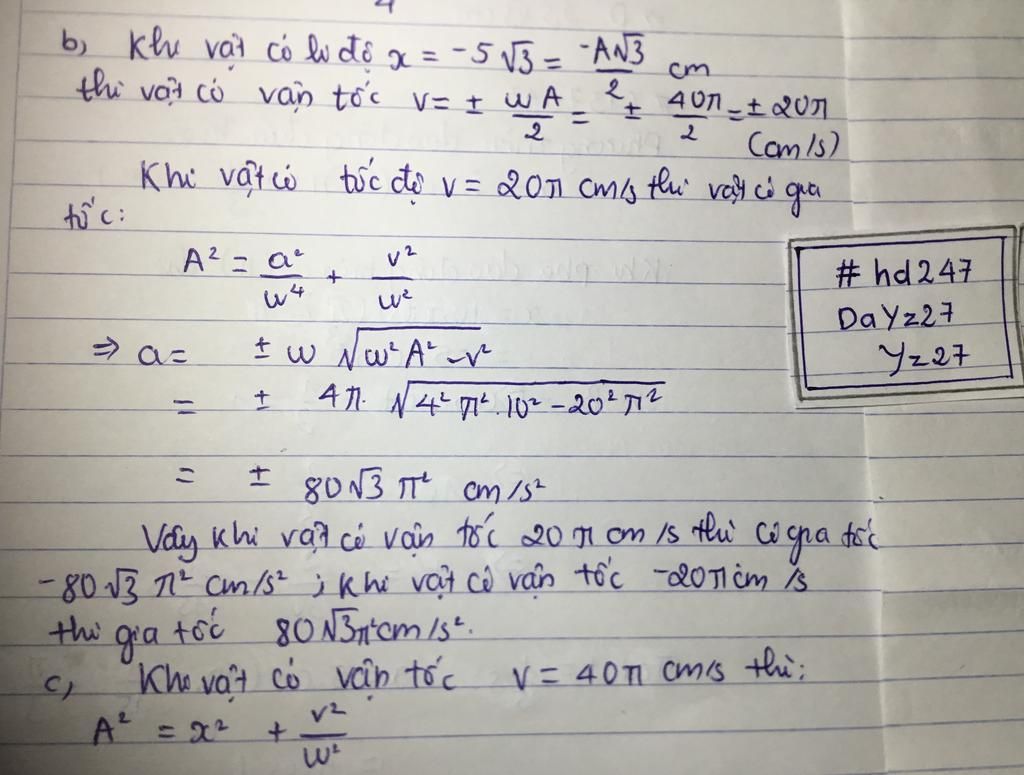 b, Khi vật có li độ x = -5√3 = -A√3/2 cm
thì vật có vận tốc v = ± ωA/2 = ± 40π/2 = ± 20π
(cm/s)
Khi vật có tốc độ v = 20π cm/s thì vật có gia
tốc:
A² = a²/ω⁴ + v²/ω²
⇒ a = ± ω √(ω²A² - v²)
= ± 4π. √(4²π².10² - 20²π²)
= ± 80√3 π² cm/s²
Vậy khi vật có vận tốc 20π cm/s thì có gia tốc
-80√3 π² cm/s² ; khi vật có vận tốc -20π cm/s
thì gia tốc 80√3π²cm/s².
c, Khi vật có vận tốc v = 40π cm/s thì:
A² = x² + v²/ω²
# hd247
DaYz27
Yz27